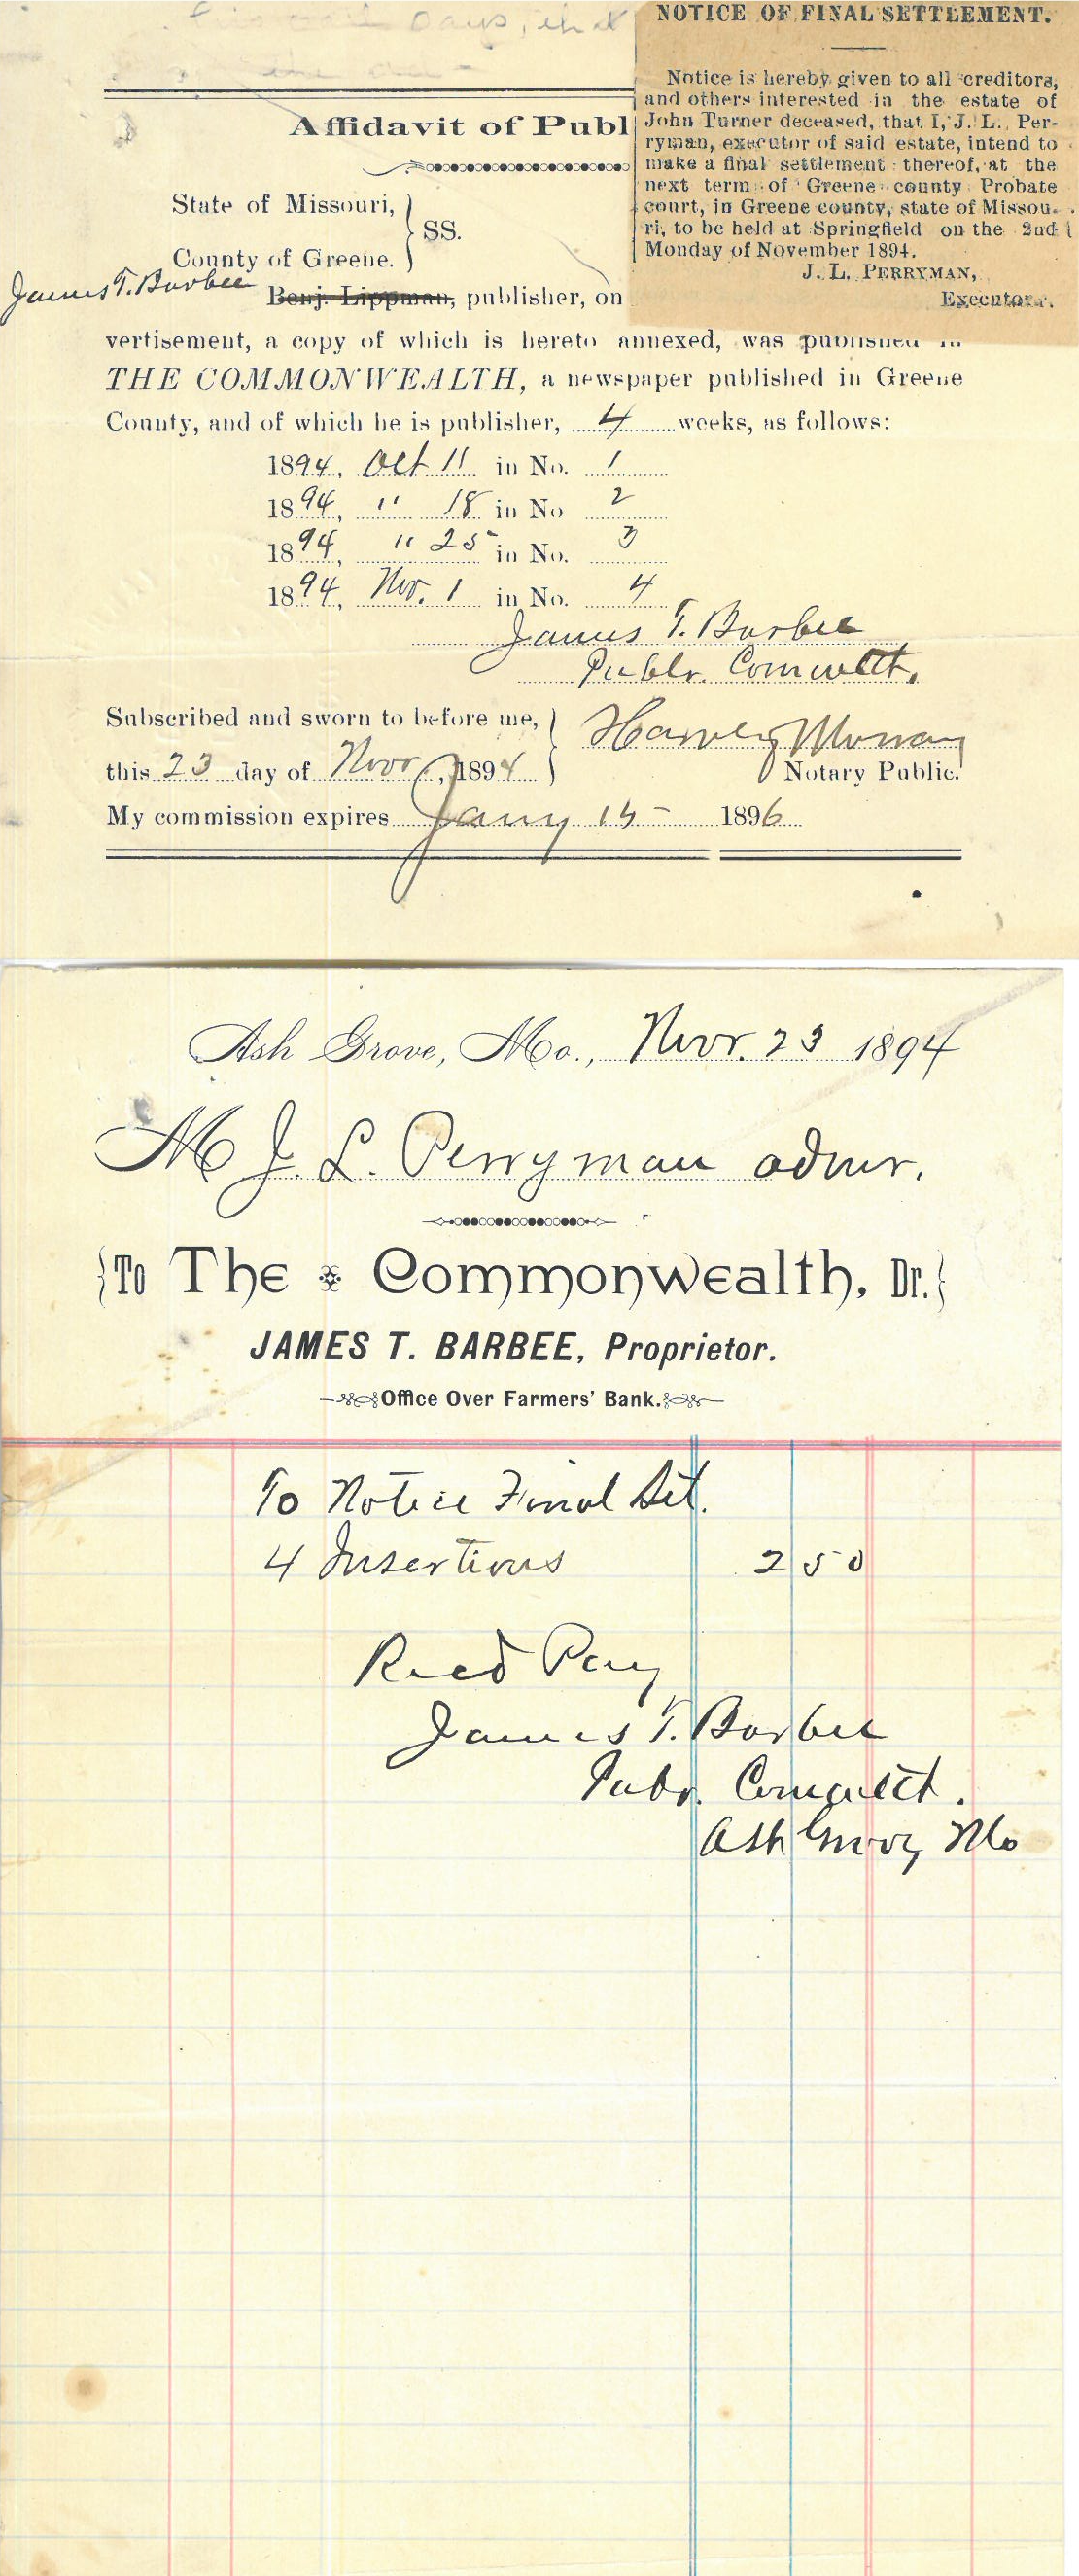 NOTICE OF FINAL SETTLEMENT.
Notice is hereby given to all creditors,
and others interested in the estate of
John Turner deceased, that I, J. L. Per-
ryman, executor of said estate, intend to
make a final settlement thereof, at the
next term of Greene county Probate
court, in Greene county, state of Missou-
ri, to be held at Springfield on the 2nd
Monday of November 1894.
J. L. PERRYMAN,
Executor.
days, that
Affidavit of Publ
State of Missouri,
SS.
County of Greene.
James T. Barbee
Benj. Lippman, publisher, on
vertisement, a copy of which is hereto annexed, was published in
THE COMMONWEALTH, a newspaper published in Greene
County, and of which he is publisher, 4 weeks, as follows:
1894, Oct 11 in No. 1
1894, " 18 in No 2
1894, " 25 in No. 3
1894, Nov. 1 in No. 4
James T. Barbee
Publr. Comwelt.
Subscribed and sworn to before me,
this 23 day of Novr, 1894
Harvey Murray
Notary Public.
My commission expires Jany 15 - 1896
Ash Grove, Mo., Novr. 23 1894
M J. L. Perryman admr.
To The Commonwealth, Dr.
JAMES T. BARBEE, Proprietor.
Office Over Farmers' Bank.
To Notice Final Set.
4 Insertions 2 50
Recd Pay
James T. Barbee
Pubr. Comwelt.
Ash Grove, Mo